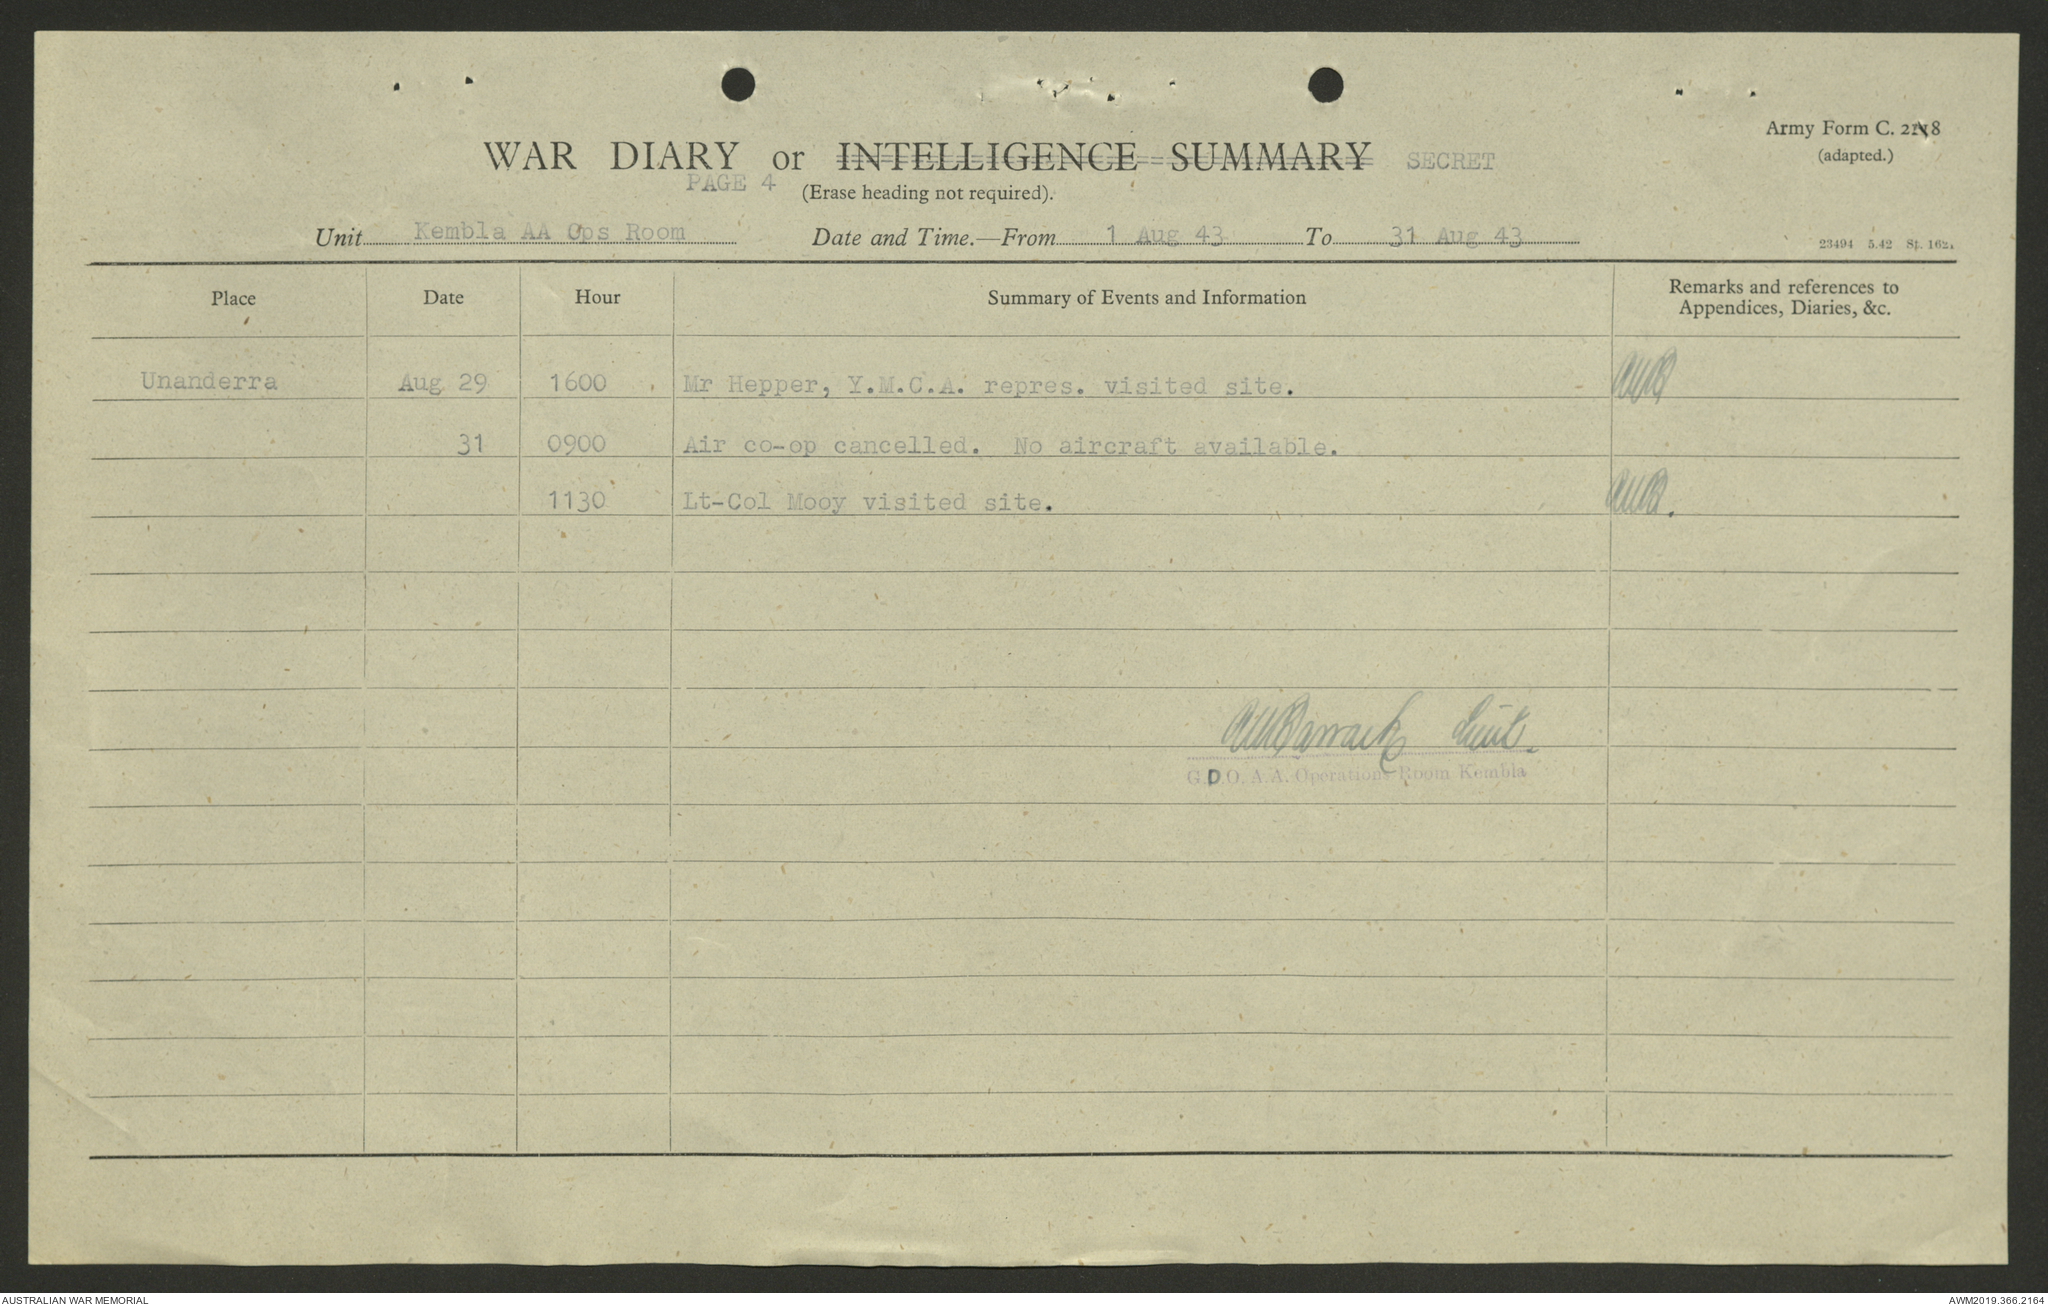 Army Form C. 2118
(adapted.)
WAR DIARY or INTELLIGENCE SUMMARY SECRET
PAGE 4
(Erase heading not required).
Unit Kembla AA Ops Room Date and Time.—From 1 Aug 43 To 31 Aug 43
23494 5.42
Place Date Hour Summary of Events and Information Remarks and references to
Appendices, Diaries, &c.
Unanderra Aug 29 1600 Mr Hepper, Y.M.C.A. repres. visited site.
31 0900 Air co-op cancelled. No aircraft available.
1130 Lt-Col Mooy visited site.
Barrack Lieut.
G.D.O. A.A. Operations Room Kembla
AUSTRALIAN WAR MEMORIAL
AWM2019.366.2164